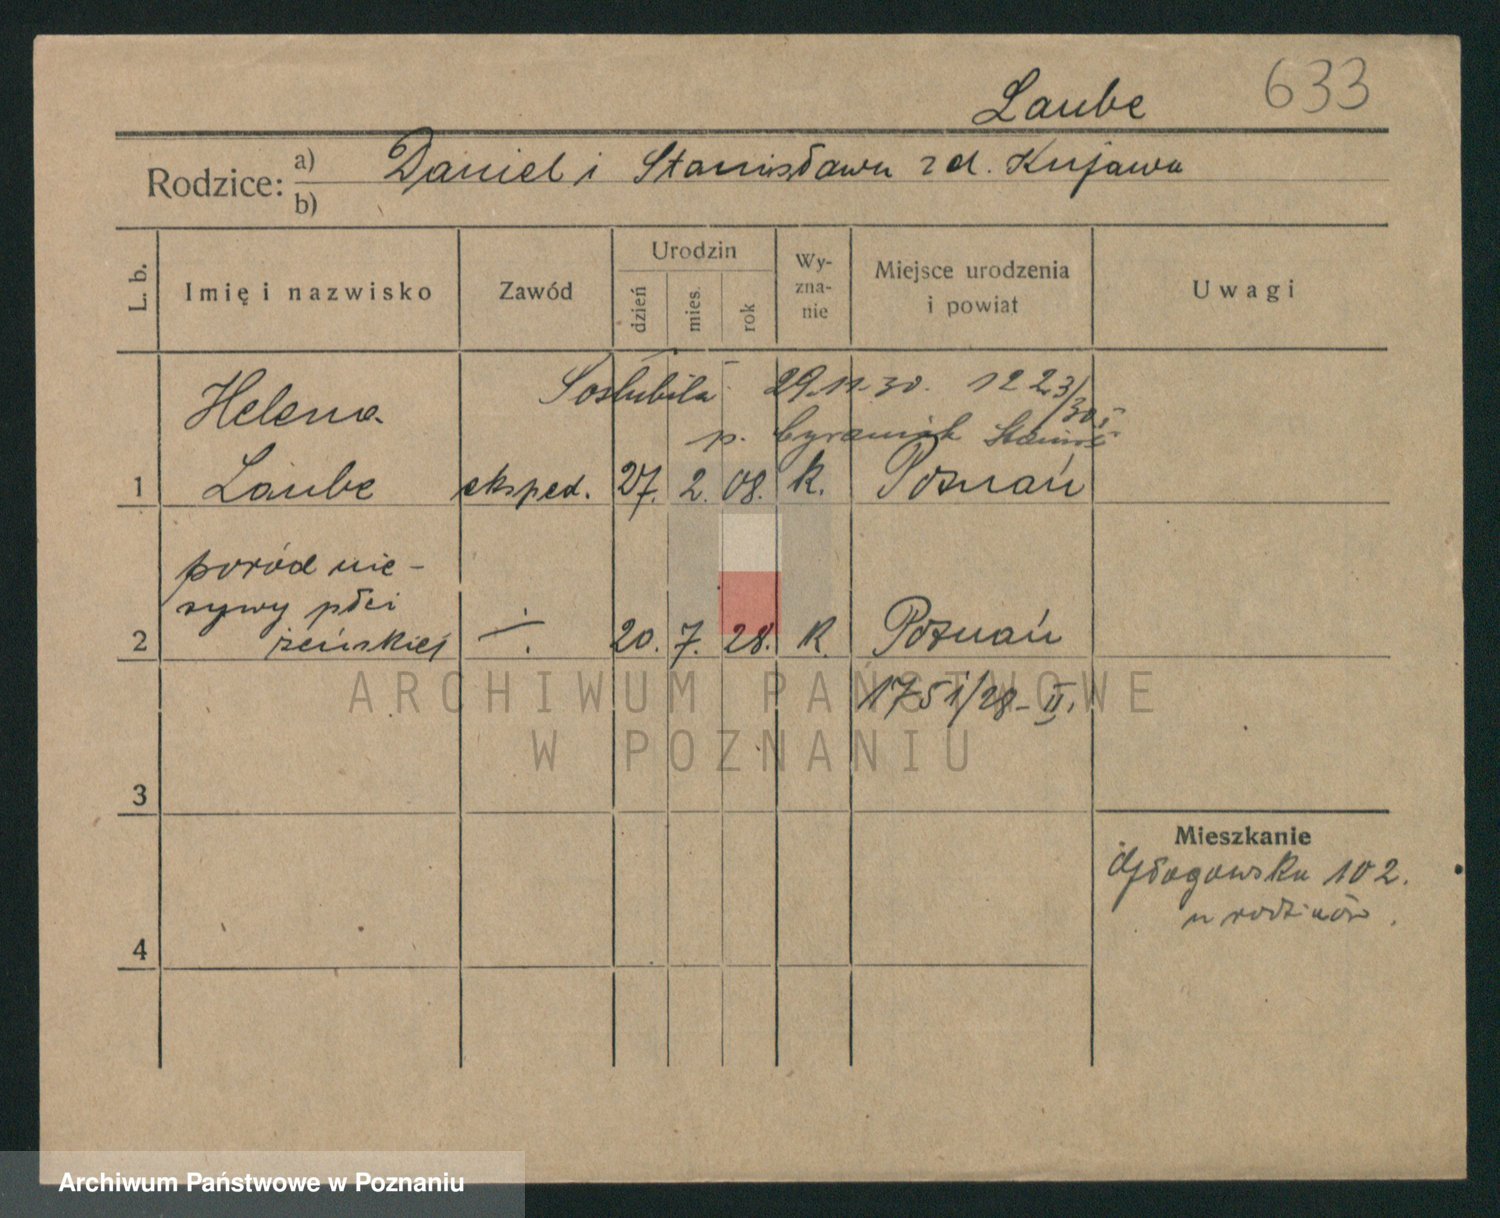 Laube 633
Rodzice: a) Daniel i Stanisława z d. Kujawa
b)
L. b. Imię i nazwisko Zawód Urodzin dzień mies. rok Wyznanie Miejsce urodzenia i powiat Uwagi
Poślubiła 29.11.30. 1223/30 I
Helena p. Stanisł
1 Laube eksped. 27. 2. 08. k. Poznań
poród nie-
żywy płci
2 żeńskiej ÷ 20. 7. 28. k. Poznań
1751/28-II.
3
Mieszkanie
Głogowska 102.
u rodziców.
4
ARCHIWUM PAŃSTWOWE
W POZNANIU
Archiwum Państwowe w Poznaniu